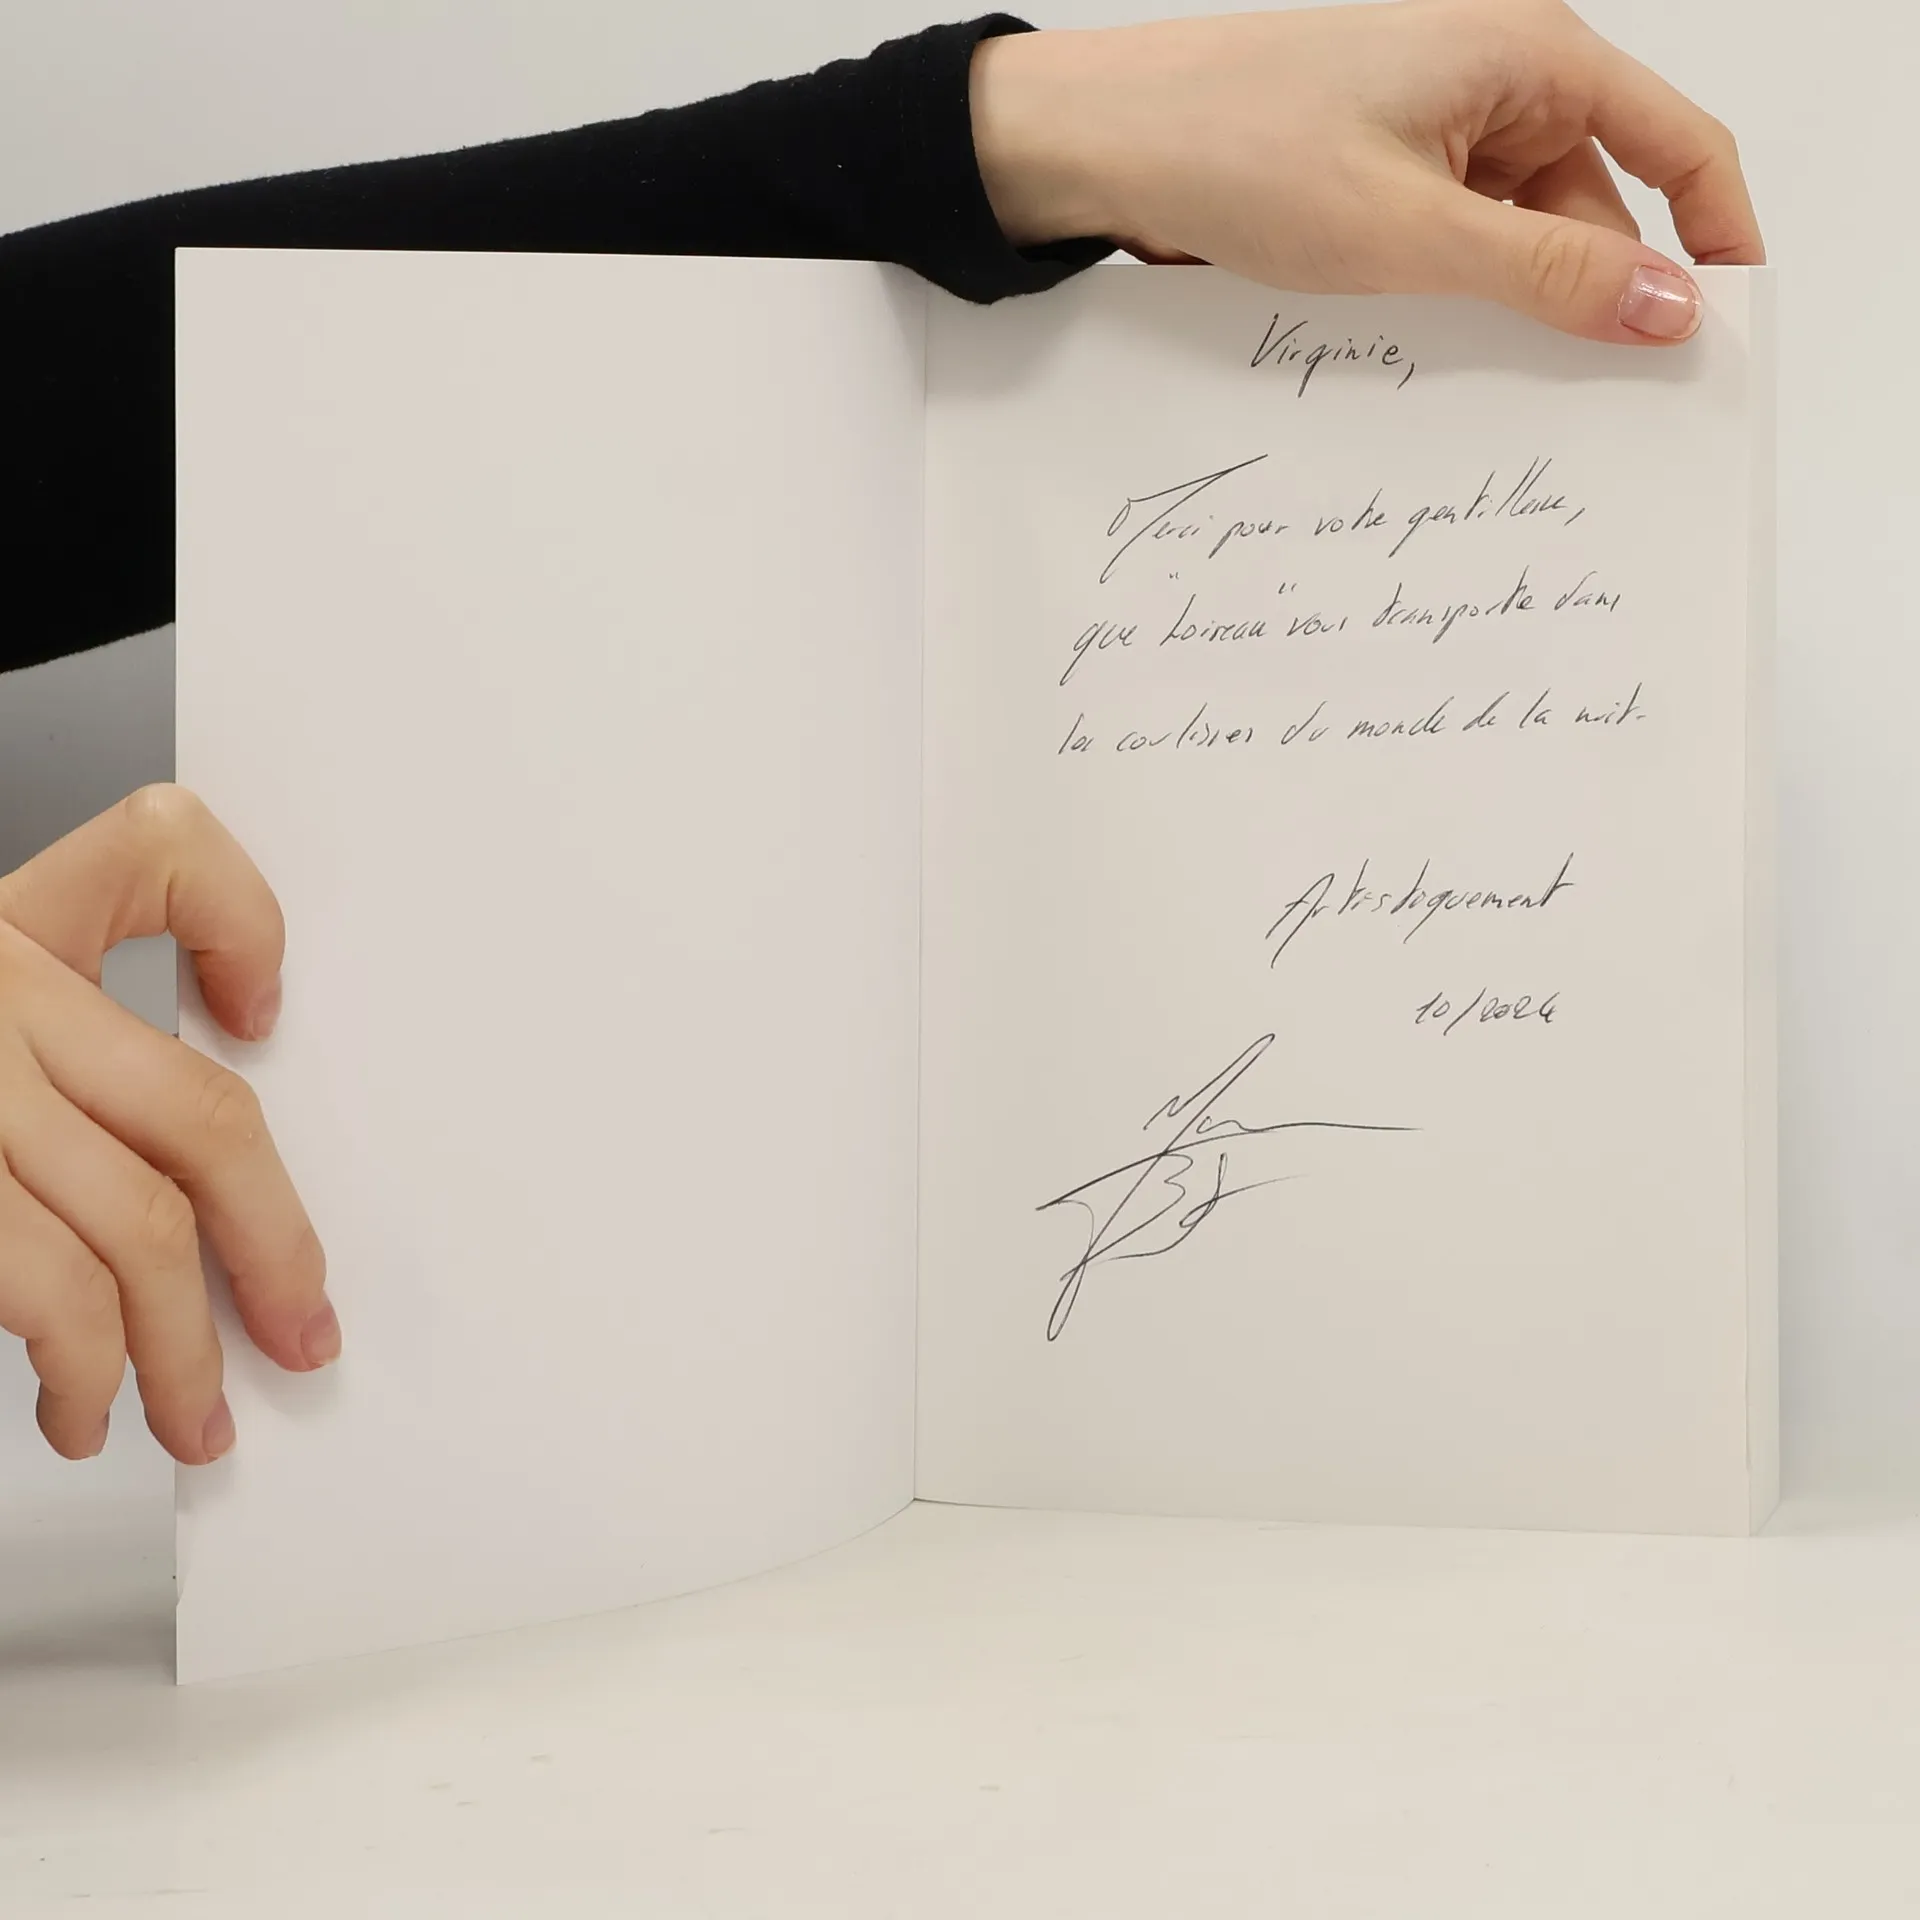 Virginie,
Merci pour votre gentillesse,
que "Loiseau" vous transporte dans
les coulisses du monde de la nuit.
Artistiquement
10/2024